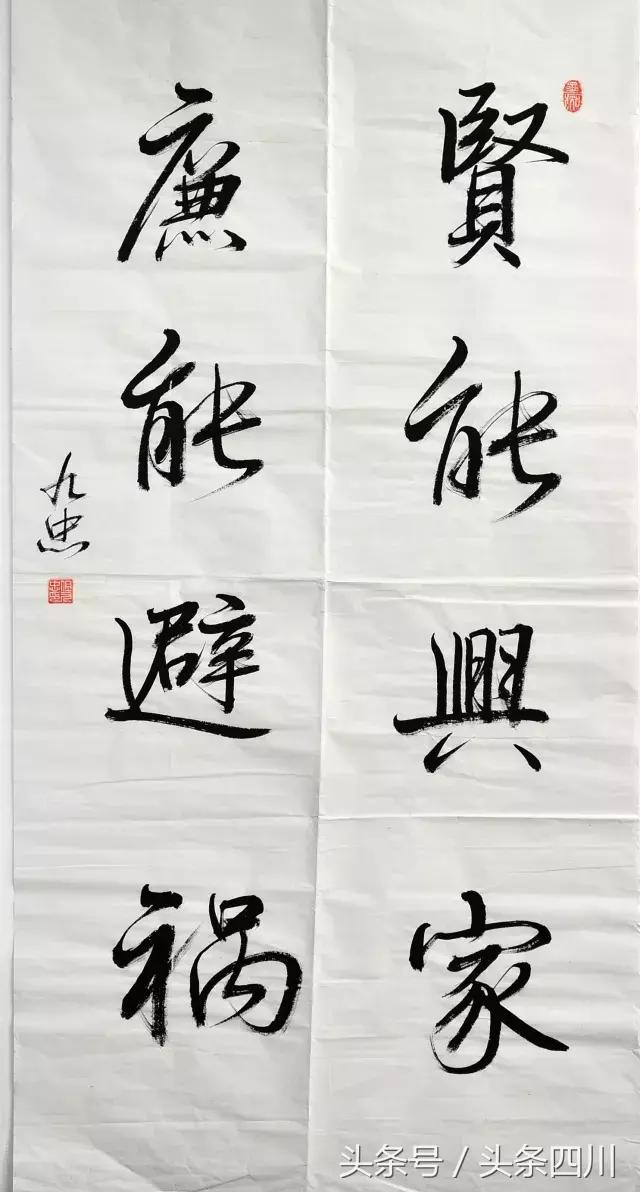 賢能興家
廉能避祸
九忠
头条号 / 头条四川